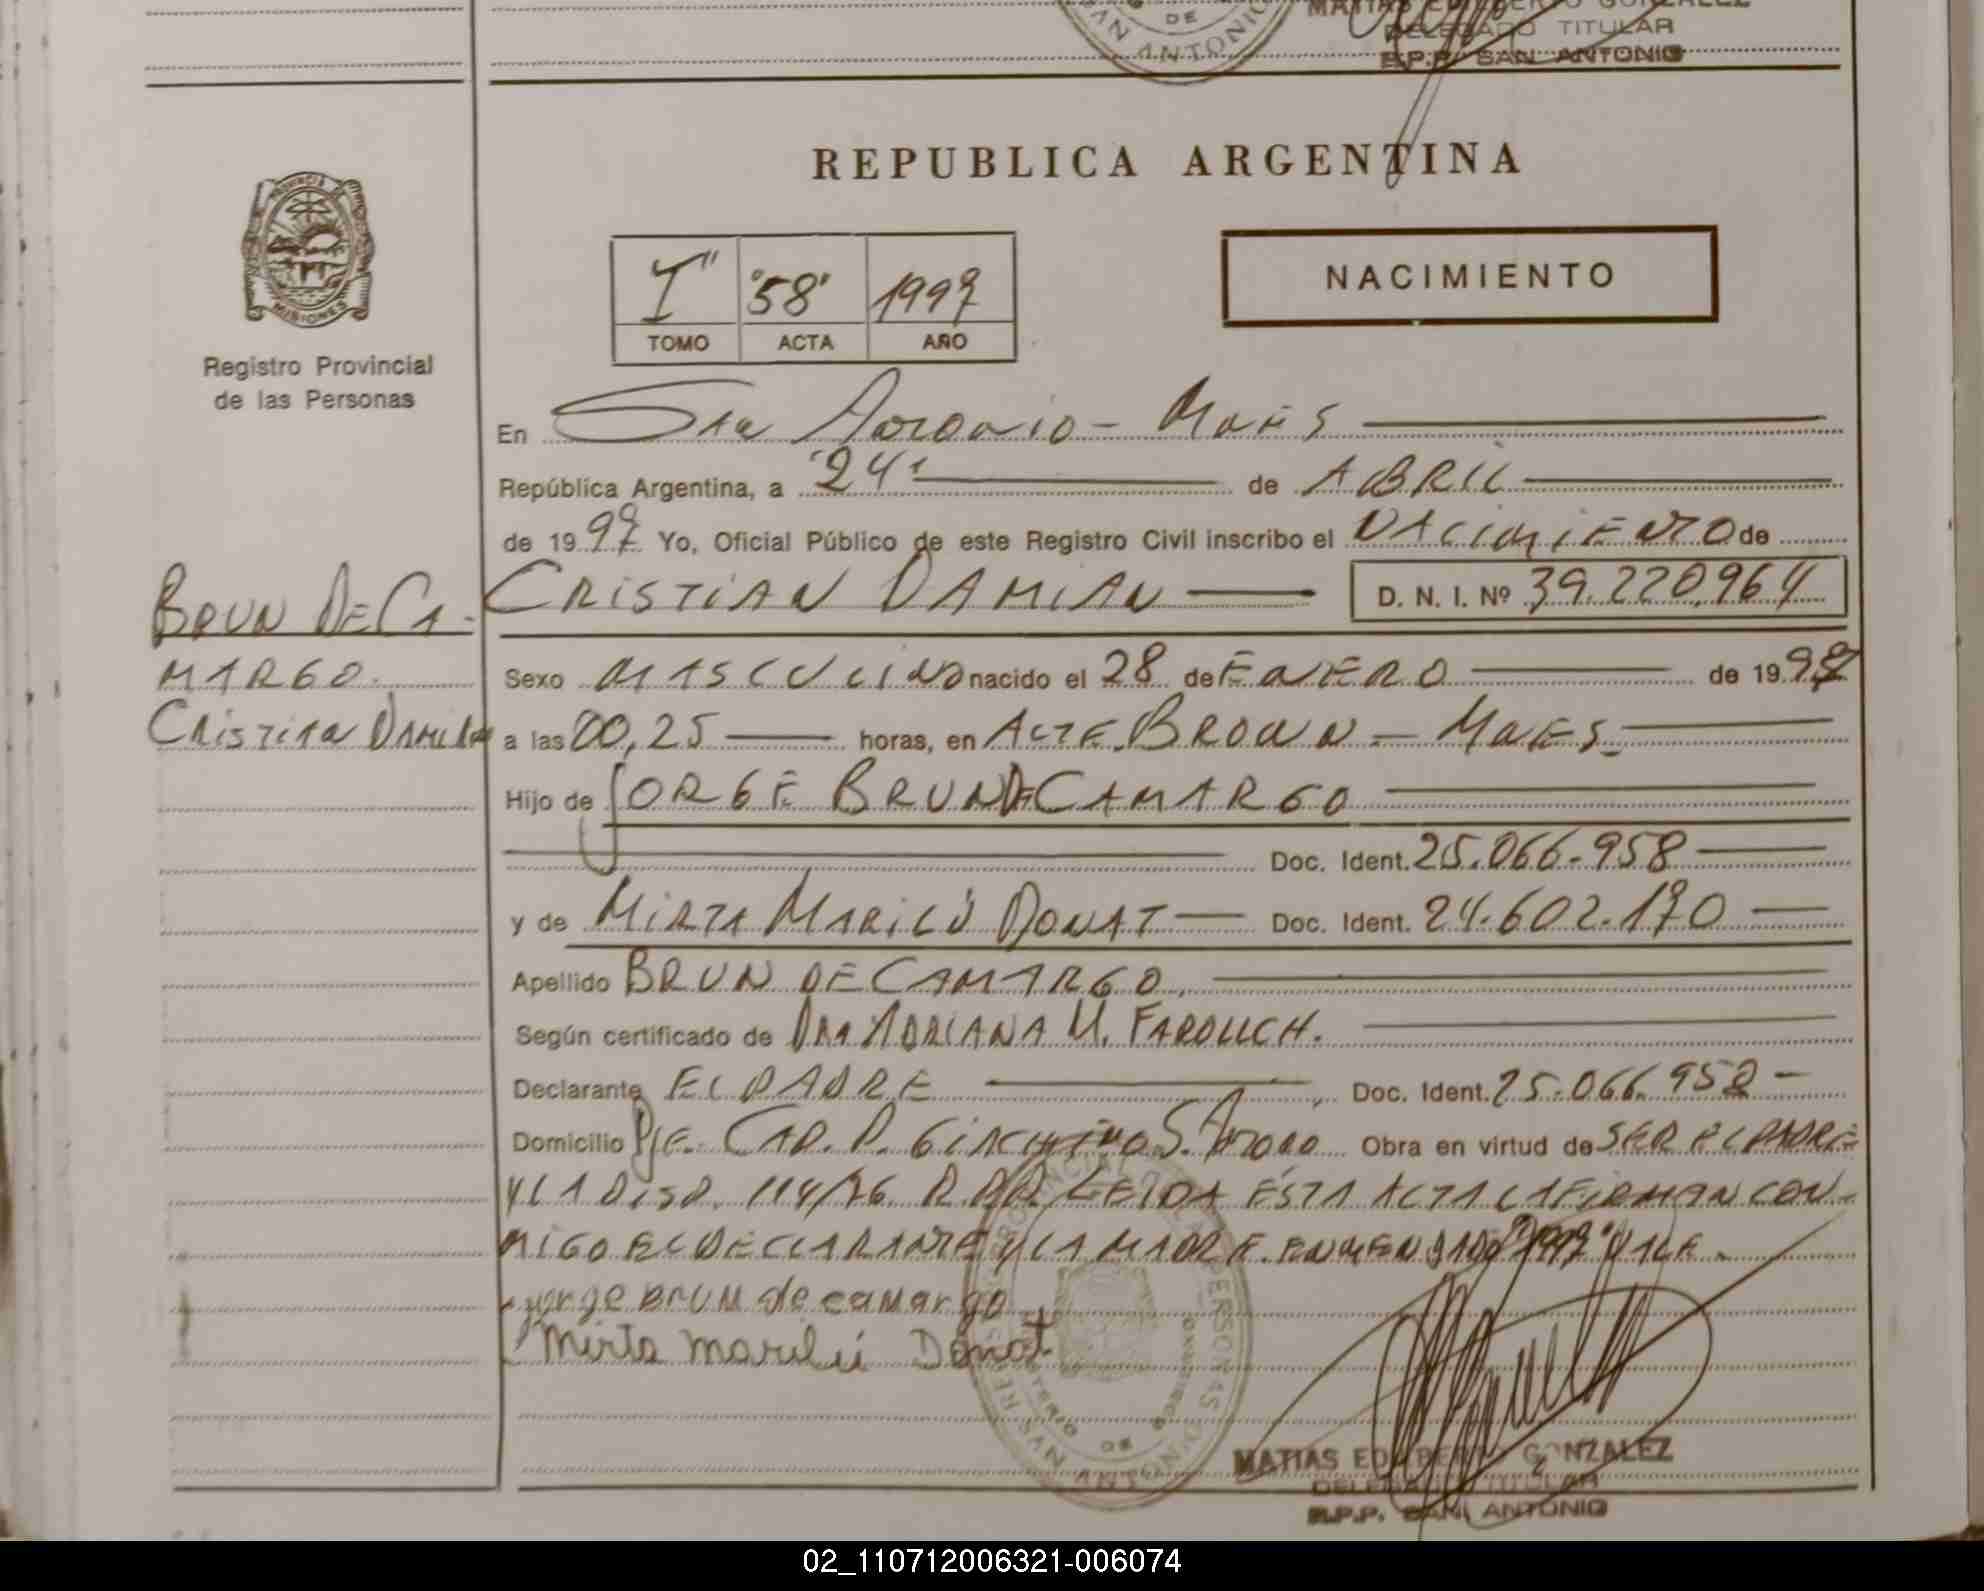 MATIAS EDILBERTO GONZALEZ
DE
SAN ANTONIO
DELEGADO TITULAR
R.P.P. SAN ANTONIO
REPUBLICA ARGENTINA
PROVINCIA DE
MISIONES
Registro Provincial
de las Personas
I" "58" 1997
TOMO ACTA AÑO
NACIMIENTO
En San Antonio - Mnes
República Argentina, a "24" de ABRIL
de 1997 Yo, Oficial Público de este Registro Civil inscribo el NACIMIENTO de
BRUN DE CA-
MARGO.
CRISTIAN DAMIAN
CRISTIAN DAMIAN D. N. I. Nº 39.220.964
Sexo MASCULINO nacido el 28 de ENERO de 1997
a las 00,25 horas, en ALTE. BROWN - MNES.
Hijo de JORGE BRUN DE CAMARGO
Doc. Ident. 25.066.958
y de MIRTA MARILÚ DONAT Doc. Ident. 24.602.170
Apellido BRUN DE CAMARGO.
Según certificado de DRA ADRIANA M. FAROUCH.
Declarante EL PADRE Doc. Ident. 25.066.958
Domicilio Pje. CAP. P. S. Obra en virtud de SER EL PADRE
Y LA DISP. 114/76. R.P.P. LEIDA ÉSTA ACTA LA FIRMAN CON-
MIGO EL DECLARANTE Y LA MADRE. ENMENDADO "1997" VALE.
jorge BRUN de camargo
Mirta Marilú Donat
REGISTRO PROVINCIAL DE LAS PERSONAS
MINISTERIO DE GOBIERNO
SAN ANTONIO
MATIAS EDILBERTO GONZALEZ
DELEGADO TITULAR
R.P.P. SAN ANTONIO
02_110712006321-006074